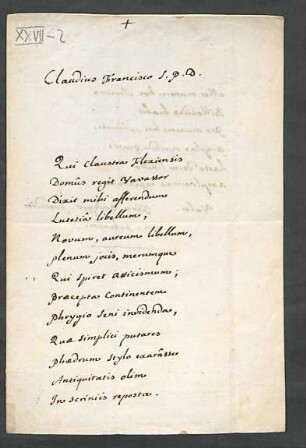 XXVII-2
+
Claudius Francisco S. P. D.
Qui claustra Flexiensis
Domûs regit Vavassor
Dixit mihi offerendum
Lutetiâ libellum,
Novum, aureum libellum,
plenum jocis, merumque
Qui spiret atticismum;
Præcepta continentem
phrygio seni invidenda,
Quæ simplici putares
phædrum stylo exarâsse
Antiquitatis olim
In scriniis reposta.